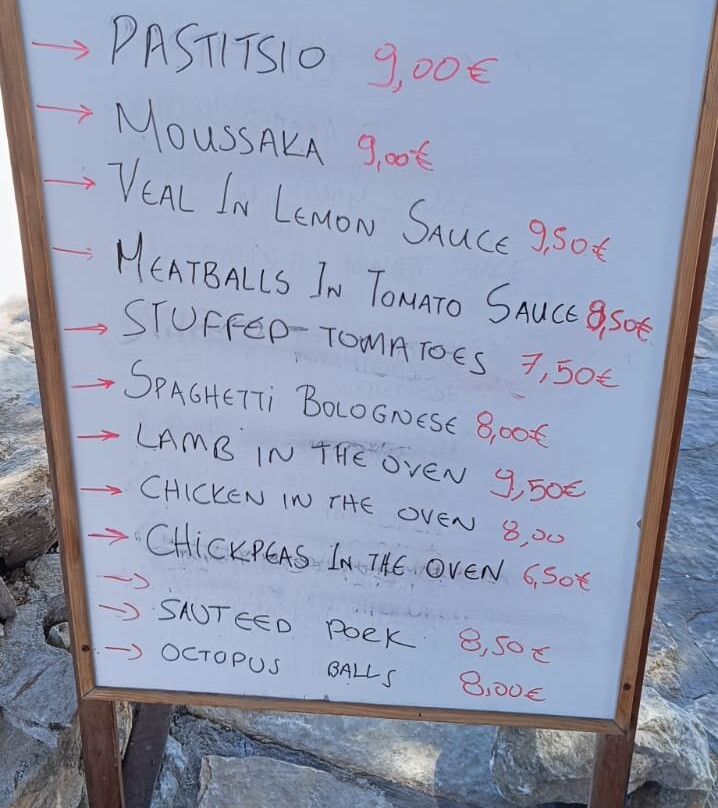 → PASTITSIO 9,00€
→ MOUSSAKA 9,00€
→ VEAL IN LEMON SAUCE 9,50€
→ MEATBALLS IN TOMATO SAUCE 8,50€
→ STUFFED TOMATOES 7,50€
→ SPAGHETTi BOLOGNESE 8,00€
→ LAMB IN THE OVEN 9,50€
→ CHICKEN IN THE OVEN 8,00
→ CHiCKPEAS IN THE OVEN 6,50€
→
→ SAUTEED PORK 8,50€
→ OCTOPUS BALLS 8,00€